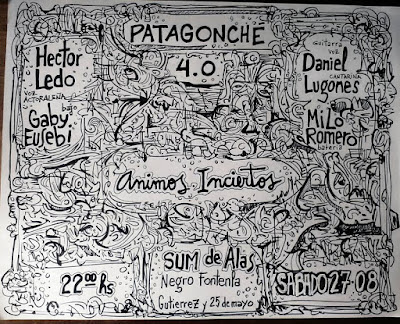 PATAGONCHE
4.0
Hector
Ledo
voz
ACTORALEÑA
bajo
Gaby
Eusebi
guitarra
voz
Daniel
CANTARINA
Lugones
Milo
Romero
batería
Animos Inciertos
22⁰⁰ Hs
SUM de Alas
Negro Fontenla
Gutierrez y 25 de mayo
SABADO 27-08